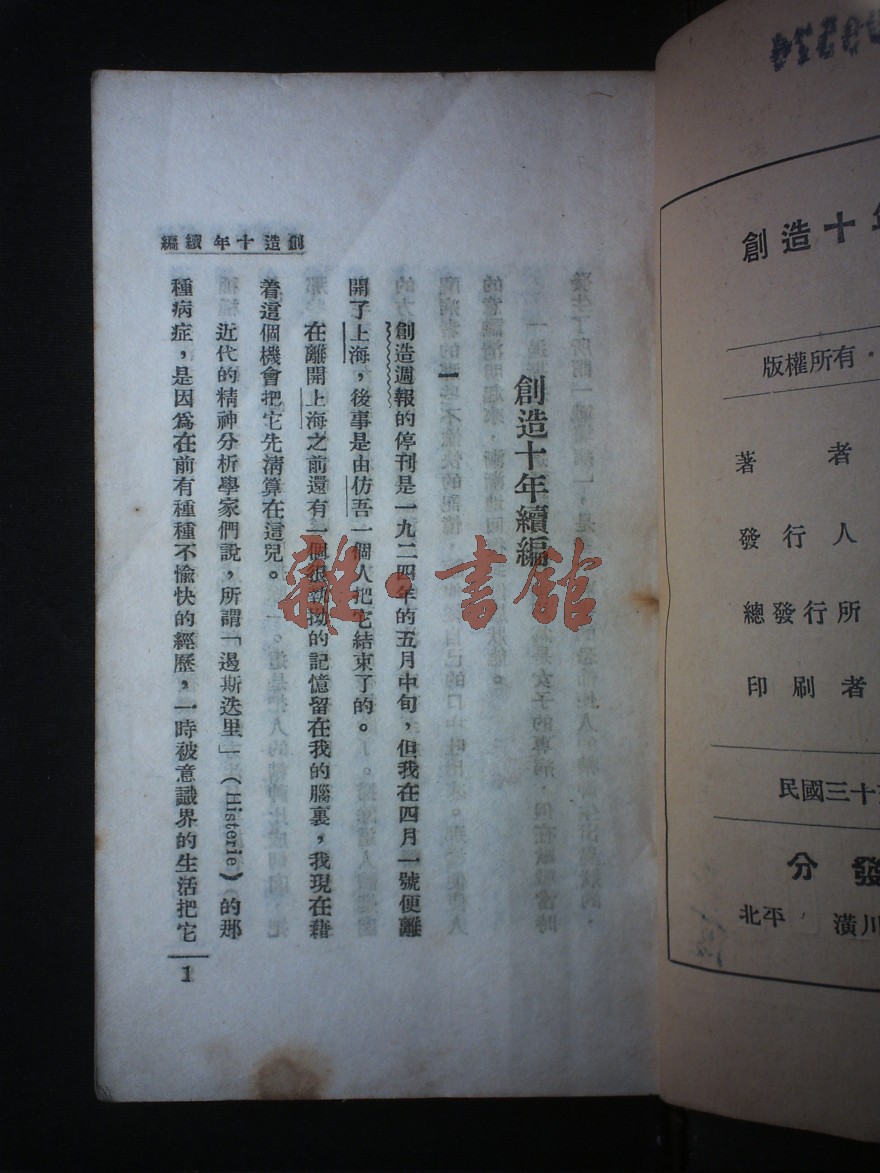 創造十年續編
創造十年續編
一
創造週報的停刊是一九二四年的五月中旬，但我在四月一號便離
開了上海，後事是由仿吾一個人把它結束了的。
在離開上海之前還有一個很執拗的記憶留在我的腦裏，我現在藉
着這個機會把它先清算在這兒。
近代的精神分析學家們說，所謂「遏斯迭里」（Histerie）的那
種病症，是因爲在前有種種不愉快的經歷，一時被意識界的生活把它
1
雜·書館
創造十年
版權所有·
著者
發行人
總發行所
印刷者
民國三十
分發
北平
潢川